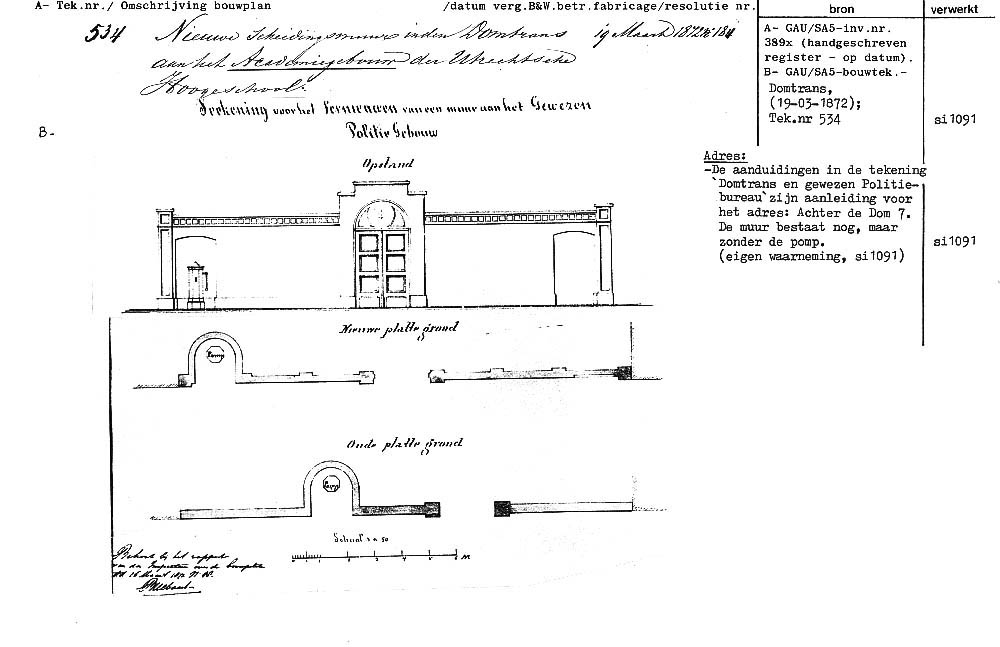 A- Tek.nr./ Omschrijving bouwplan /datum verg.B&W.betr.fabricage/resolutie nr.
bron
verwerkt
534 Nieuwe Scheidingsmuur in den Domtrans 19 Maart 1872
aan het Academiegebouw der Utrechtsche
Hoogeschool.
A- GAU/SA5-inv.nr.
389x (handgeschreven
register - op datum).
B- GAU/SA5-bouwtek.-
Domtrans,
(19-03-1872);
Tek.nr 534
si1091
B-
Teekening voor het Vernieuwen van een muur aan het Gewezen
Politie Gebouw
Opstand
Adres:
-De aanduidingen in de tekening
`Domtrans en gewezen Politie-
bureau`zijn aanleiding voor
het adres: Achter de Dom 7.
De muur bestaat nog, maar
zonder de pomp.
(eigen waarneming, si1091)
si1091
Nieuwe platte grond
Pomp
Oude platte grond
Pomp
Schaal 1 à 50
M
Behoort bij het rapport
van den